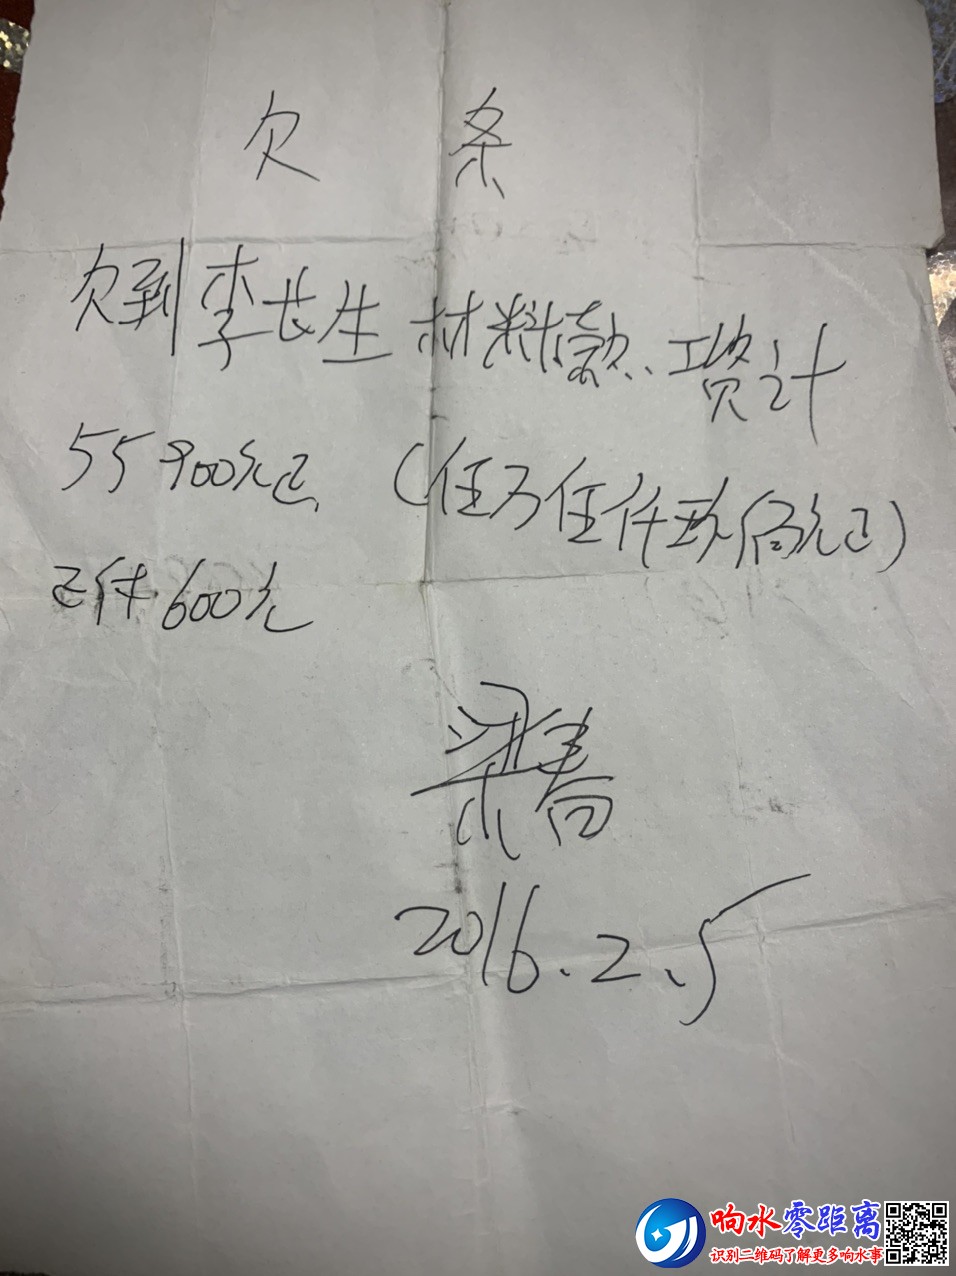 欠 条
欠到李长生材料款、工资计
55900元正 (伍万伍仟玖佰元正)
已付600元
梁春
2016.2.5
响水零距离
识别二维码了解更多响水事